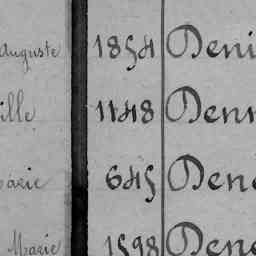 Auguste 1854 Deni
ille 1148 Denn
Marie 645 Den
Marie 1598 Dene